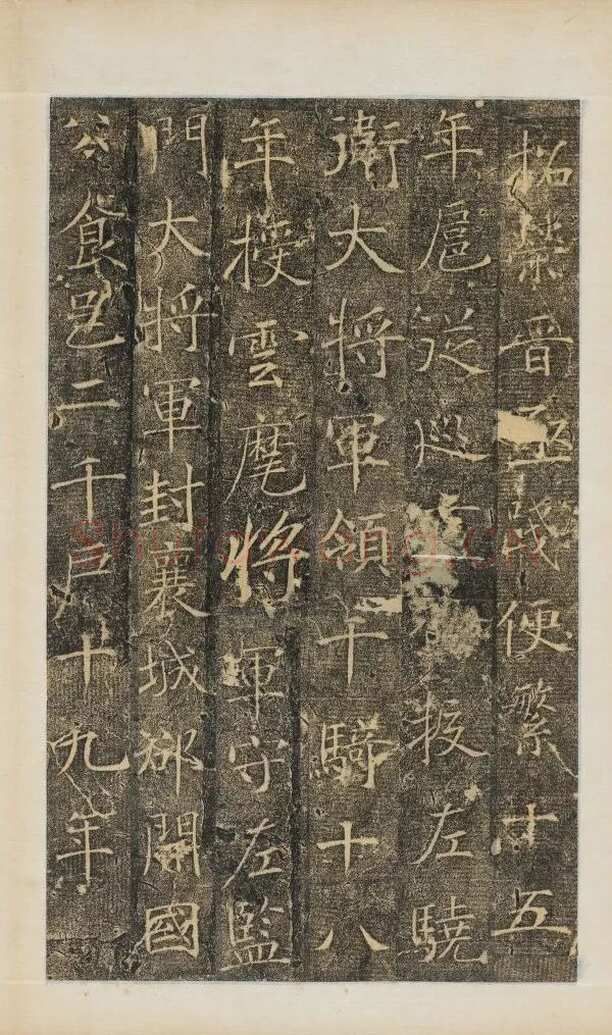 拓榮晉 茂便繁十五
年扈從巡 授左驍
衛大將軍領千騎十八
年授雲麾將軍守左監
門大將軍封襄城郡開國
公食邑二千戶十九年